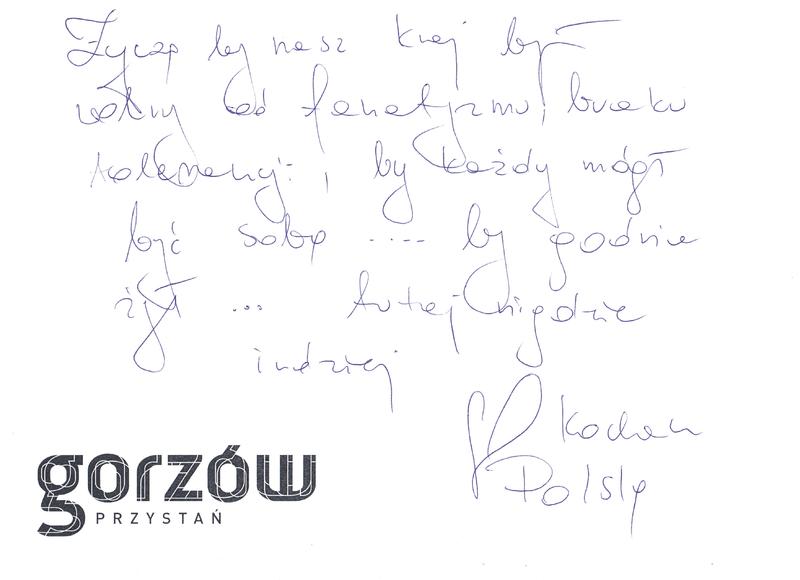 Życzę by nasz kraj był
wolny od fanatyzmu, braku
tolerancji , by każdy mógł
być sobą .... by godnie
żył ... tutaj nigdzie
indziej
Kocham
Polskę
gorzów
PRZYSTAŃ